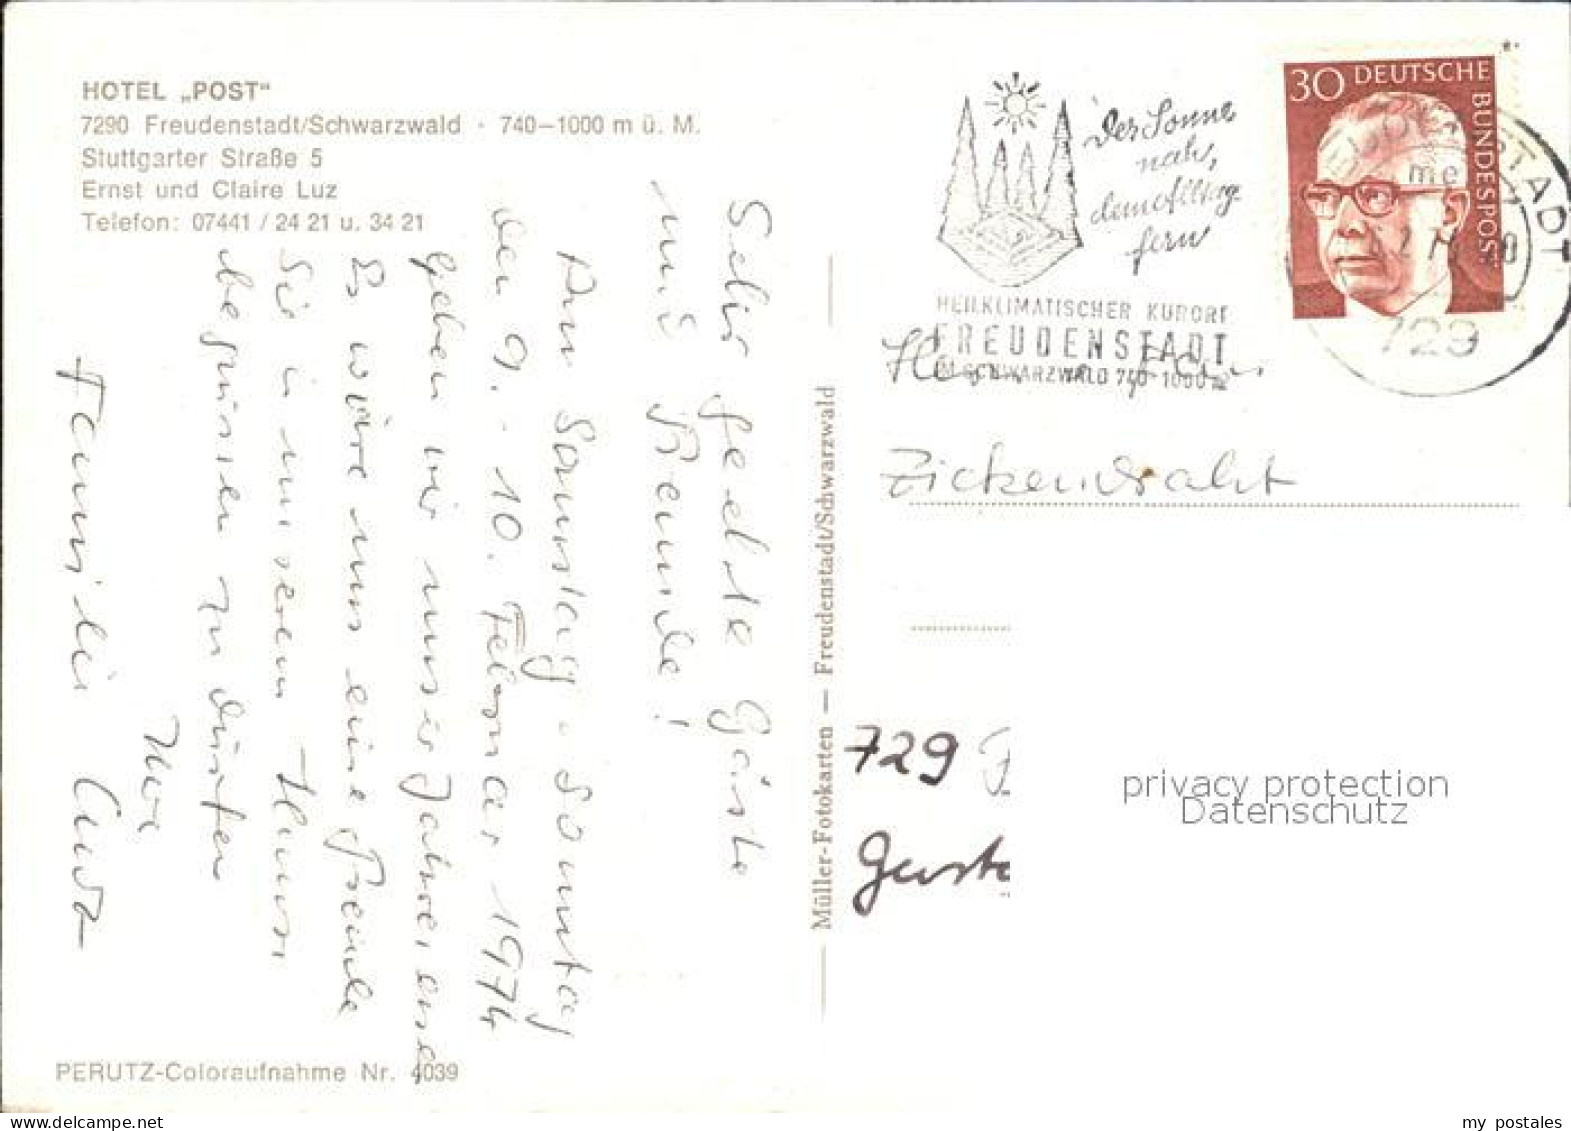 HOTEL „POST“
7290 Freudenstadt/Schwarzwald · 740–1000 m ü. M.
Stuttgarter Straße 5
Ernst und Claire Luz
Telefon: 07441 / 24 21 u. 34 21
Sehr geehrte Gäste
und Freunde!
Am Samstag - Sonntag
den 9. - 10. Februar 1974
geben wir unser
Es wäre uns eine Freude
Sie in unserem Hause
begrüssen zu dürfen
Ihre
Familie Luz
PERUTZ-Coloraufnahme Nr. 4039
Müller-Fotokarten — Freudenstadt/Schwarzwald
Der Sonne
nah,
dem Alltag
fern
HEILKLIMATISCHER KURORT
FREUDENSTADT
IM SCHWARZWALD 740-1000 m
30 DEUTSCHE
BUNDESPOST
FREUDENSTADT
729
Zickendraht
729
Gust
privacy protection
Datenschutz
delcampe.net
my_postales